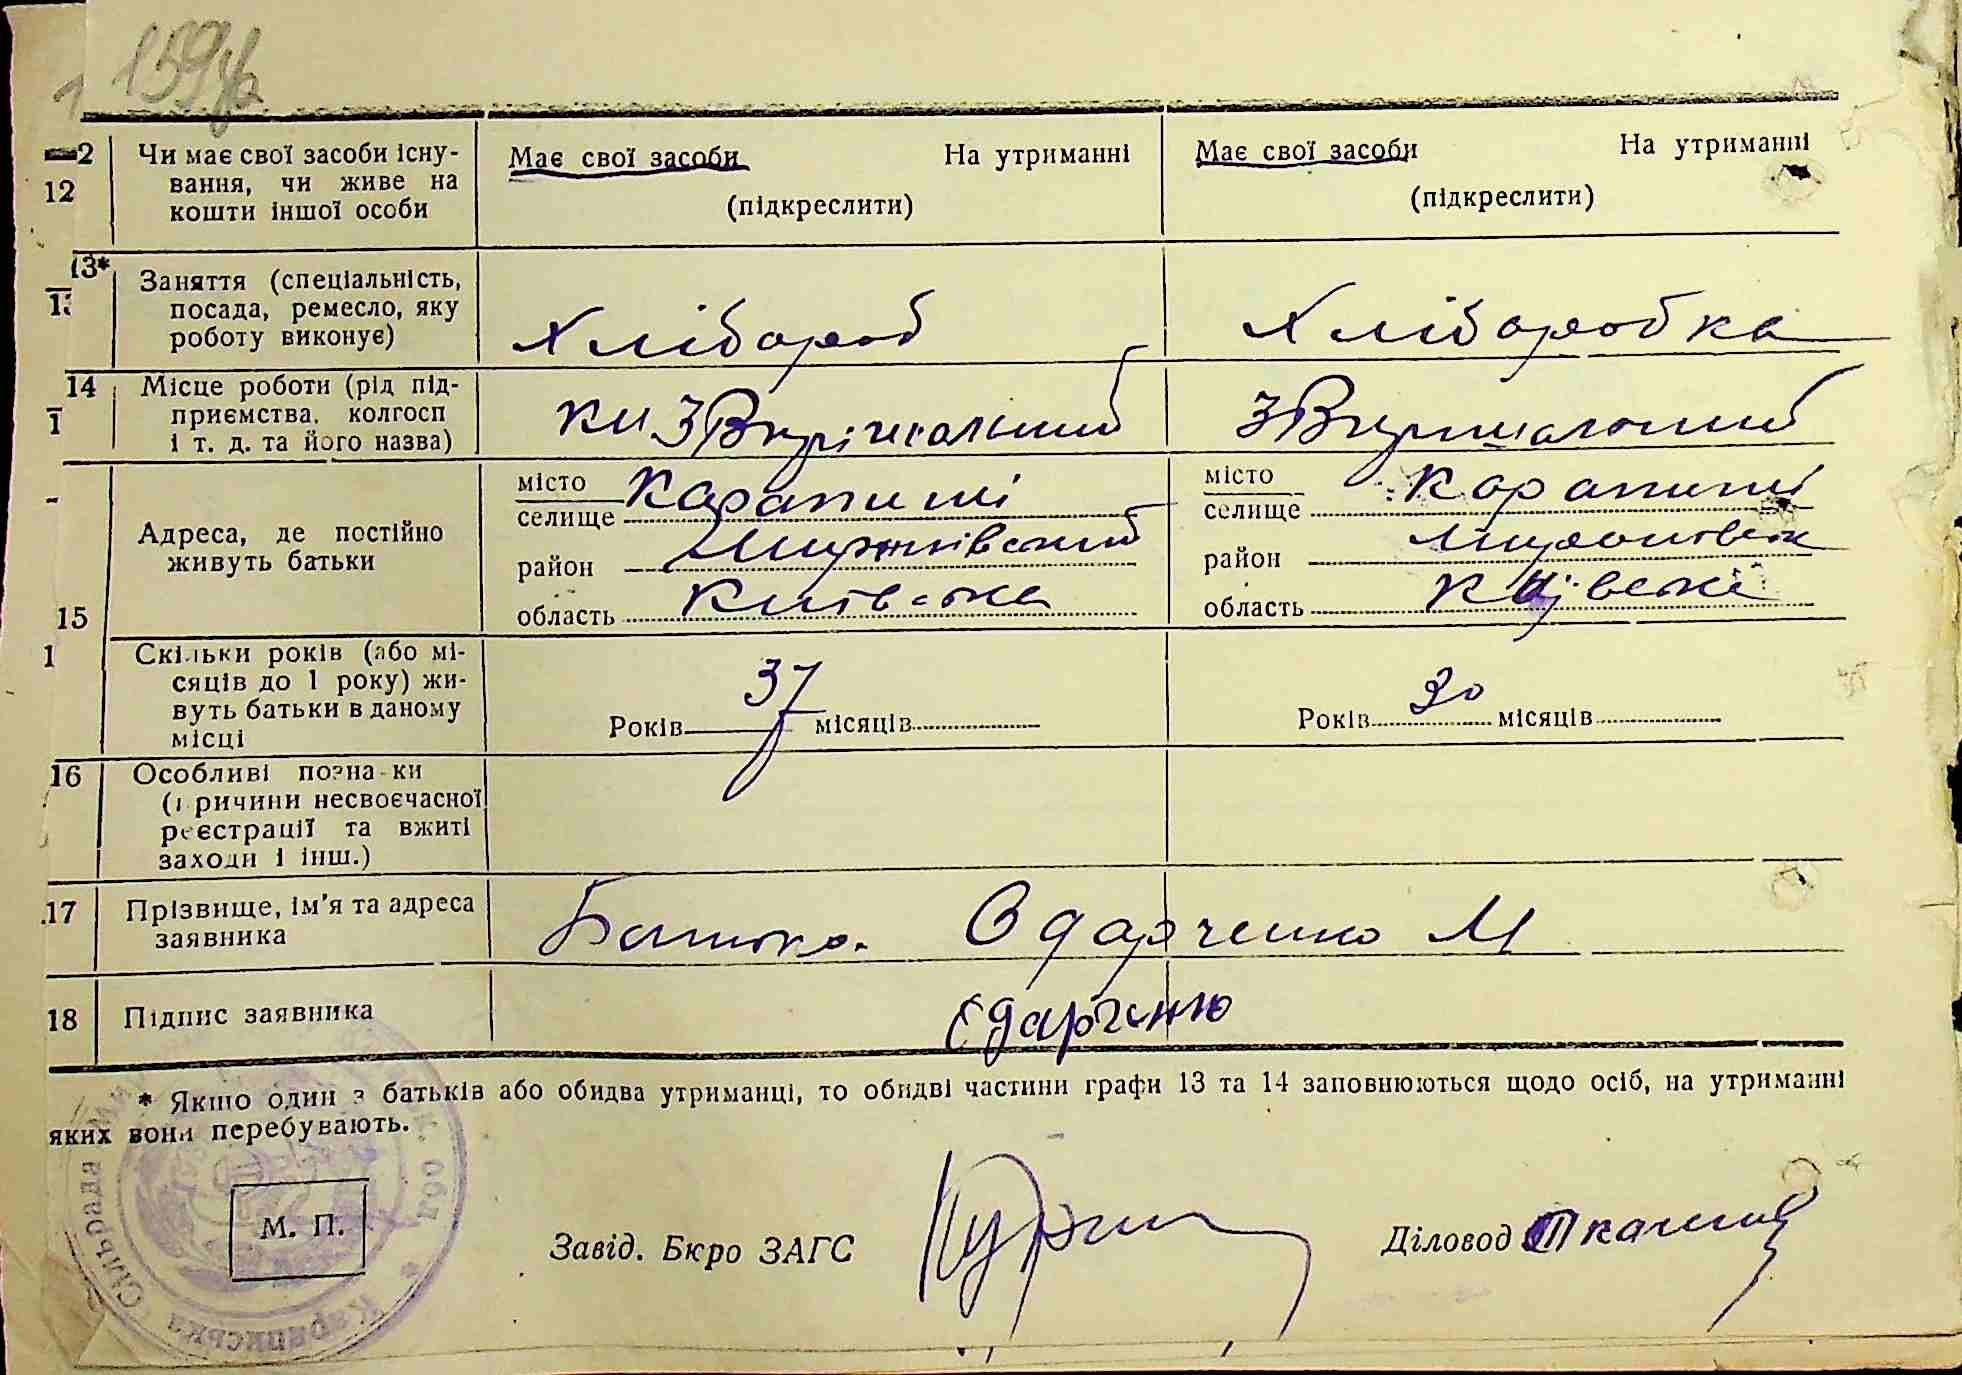 159
12 Чи має свої засоби існу- Має свої засоби На утриманні Має свої засоби На утриманні
вання, чи живе на (підкреслити) (підкреслити)
кошти іншої особи
13* Заняття (спеціальність,
посада, ремесло, яку Хлібороб Хліборобка
роботу виконує)
14 Місце роботи (рід під-
приємства, колгосп
і т. д. та його назва)
місто Карапиші місто Карапиші
селище селище
Адреса, де постійно
живуть батьки район район
область Київська область
15
Скільки років (або мі-
сяців до 1 року) жи- 37 30
вуть батьки в даному Років місяців Років місяців
місці
16 Особливі позначки
(причини несвоєчасної
реєстрації та вжиті
заходи і інш.)
17 Прізвище, ім'я та адреса Батько. Одарченко М
заявника
18 Підпис заявника Одарченко
* Якщо один з батьків або обидва утриманці, то обидві частини графи 13 та 14 заповнюються щодо осіб, на утриманні
яких вони перебувають.
М. П.
Завід. Бюро ЗАГС Діловод
сільрада